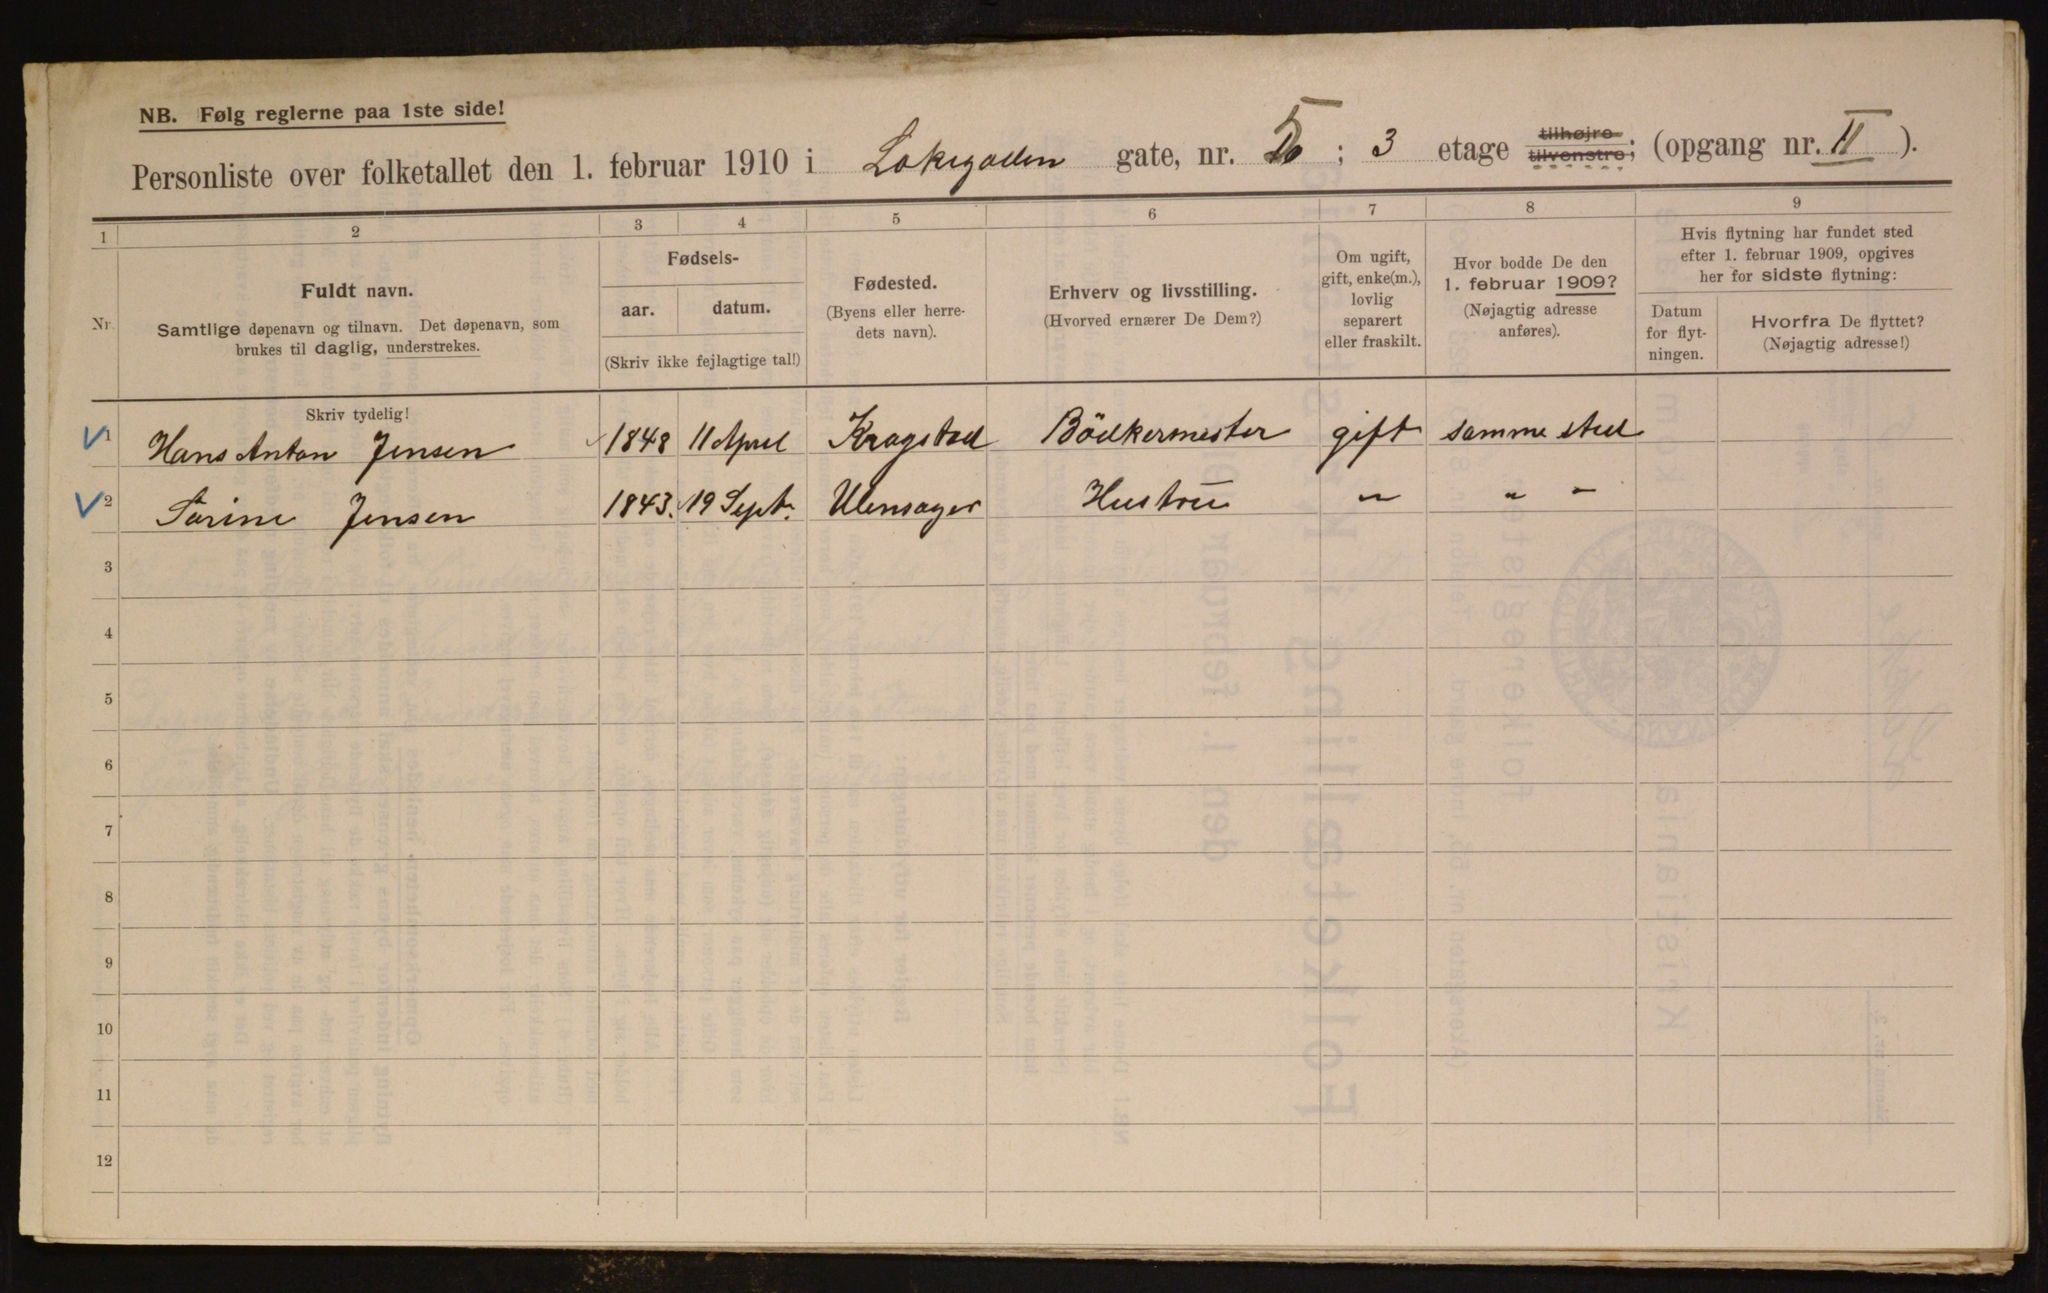 NB. Følg reglerne paa 1ste side!
Personliste over folketallet den 1. februar 1910 i Lokegaden gate, nr. ; 3 etage tilhøjre tilvenstre; (opgang nr. II ).
1 2 3 4 5 6 7 8 9
Nr.
Fuldt navn.
Samtlige døpenavn og tilnavn. Det døpenavn, som
brukes til daglig, understrekes.
Fødsels-
aar. datum.
(Skriv ikke fejlagtige tal!)
Fødested.
(Byens eller herre-
dets navn).
Erhverv og livsstilling.
(Hvorved ernærer De Dem?)
Om ugift,
gift, enke(m.),
lovlig
separert
eller fraskilt.
Hvor bodde De den
1. februar 1909?
(Nøjagtig adresse
anføres).
Hvis flytning har fundet sted
efter 1. februar 1909, opgives
her for sidste flytning:
Datum
for flyt-
ningen.
Hvorfra De flyttet?
(Nøjagtig adresse!)
Skriv tydelig!
1 Hans Anton Jensen 1848 11 April Kragstad Bödkermester gift samme sted
2 Sørine Jensen 1843. 19 Sept. Ulensager Hustru " " "
3
4
5
6
7
8
9
10
11
12